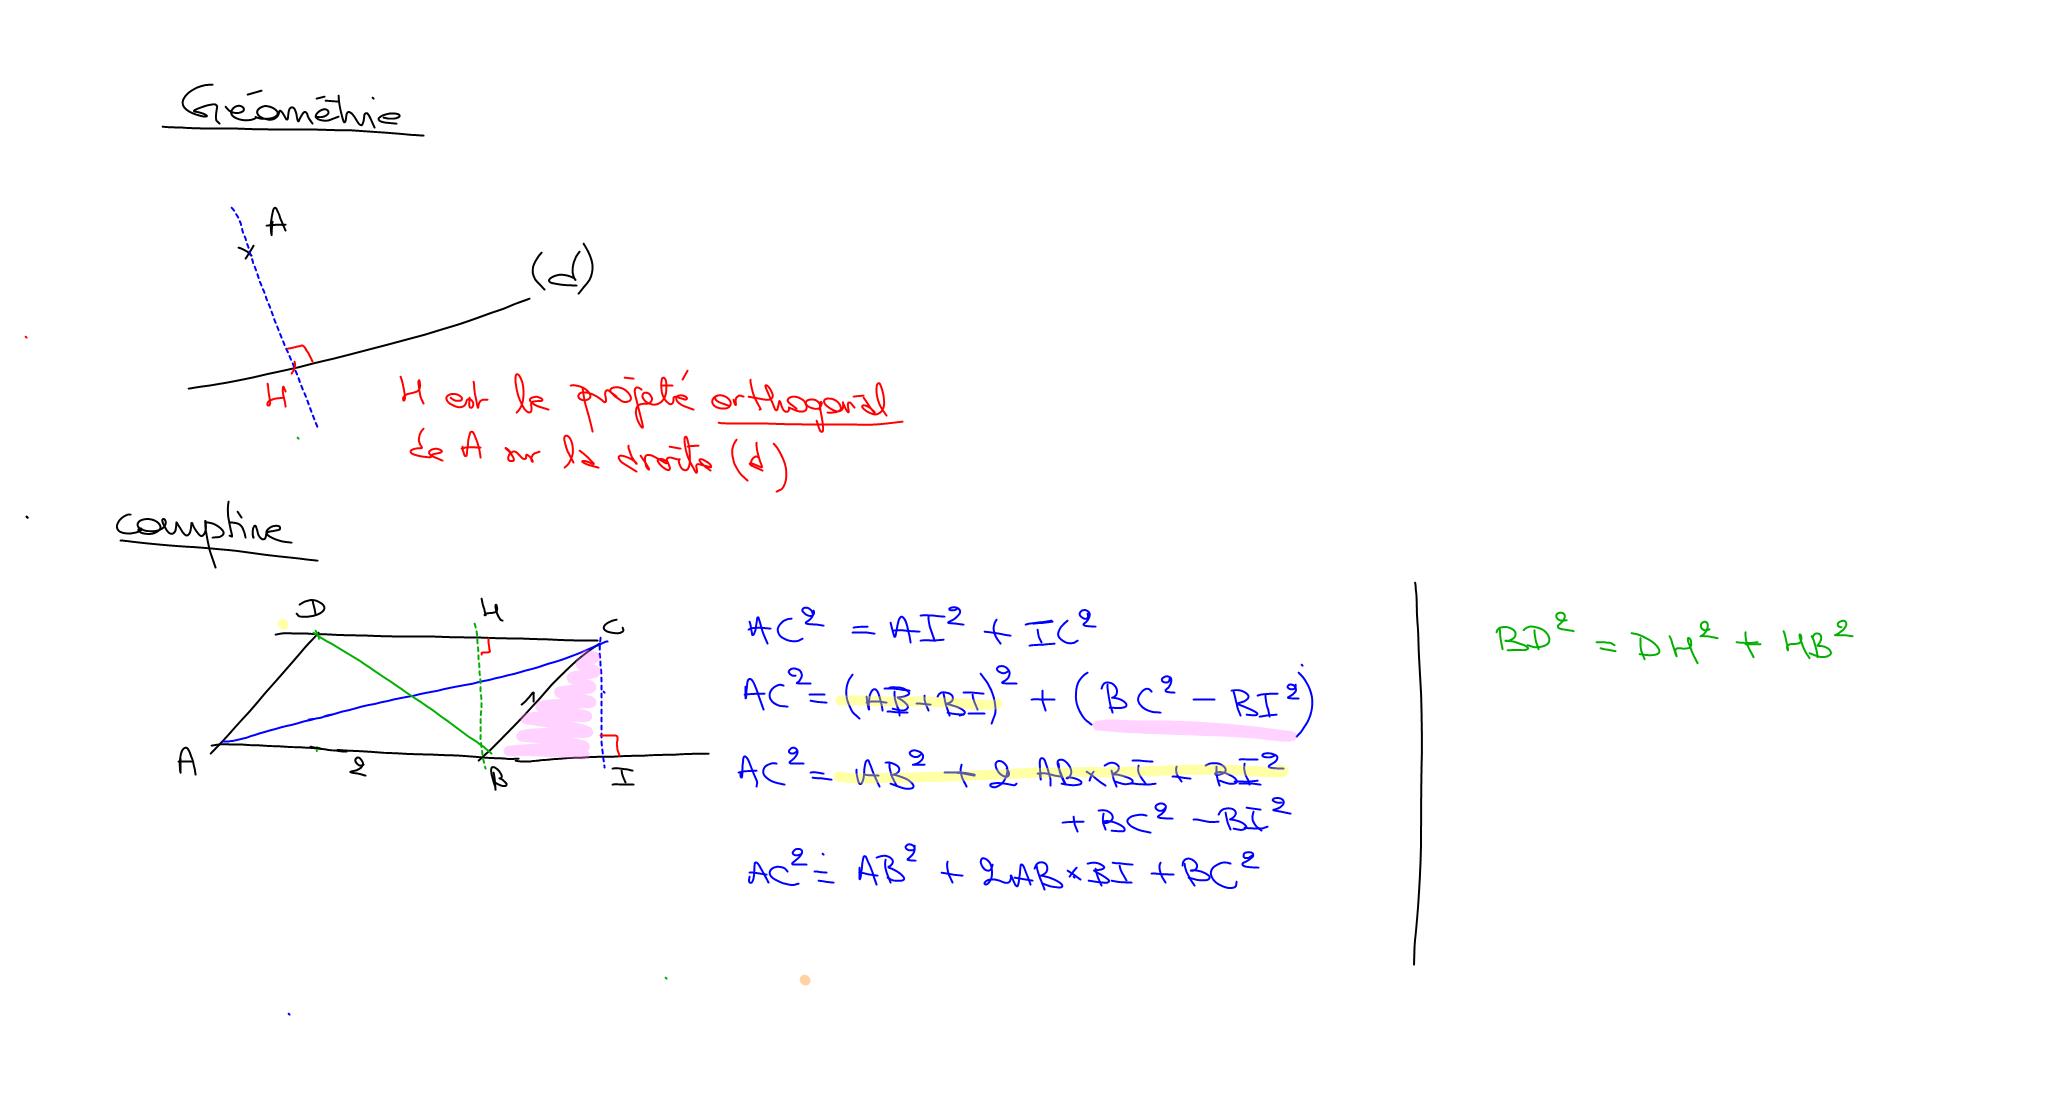 Géométrie
A
(d)
H
H est le projeté orthogonal
de A sur la droite (d)
comptine
D
H
C
1
A
2
B
I
AC² = AI² + IC²
AC² = (AB+BI)² + (BC² - BI²)
AC² = AB² + 2 AB×BI + BI²
+ BC² - BI²
AC² = AB² + 2AB×BI + BC²
BD² = DH² + HB²